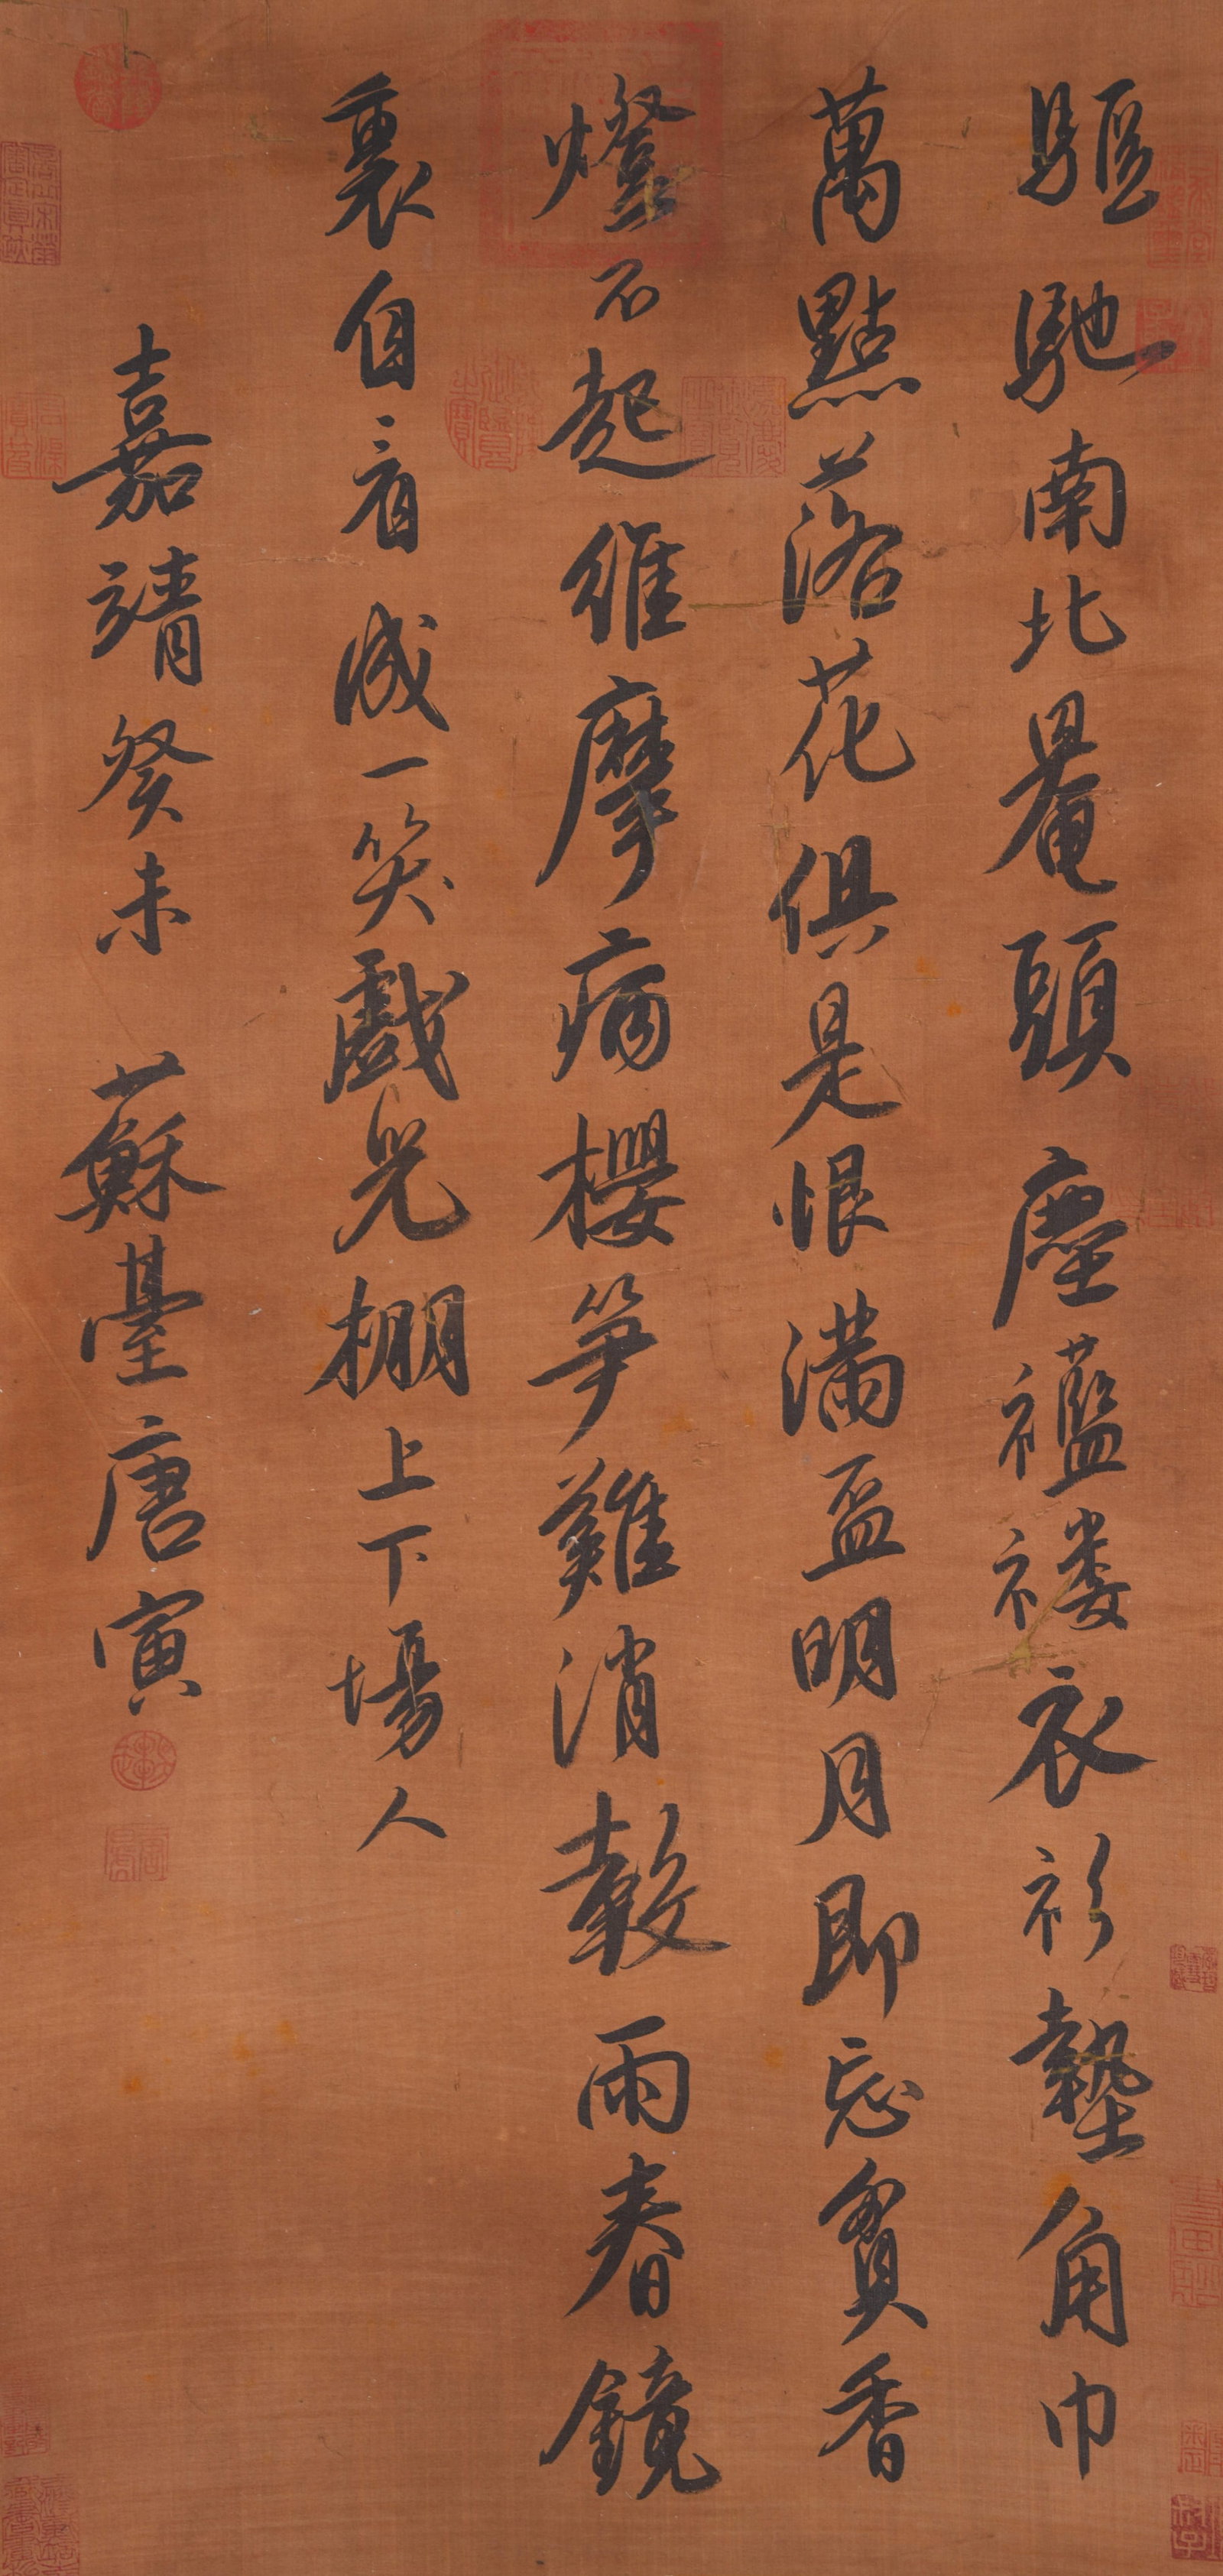 驅馳南北罨頭塵襤褸衣衫墊角巾
萬點落花俱是恨滿盃明月即忘貧香
燈不起維摩病櫻笋難消穀雨春鏡
裏自看成一笑戲兒棚上下場人
嘉靖癸未 蘇臺唐寅